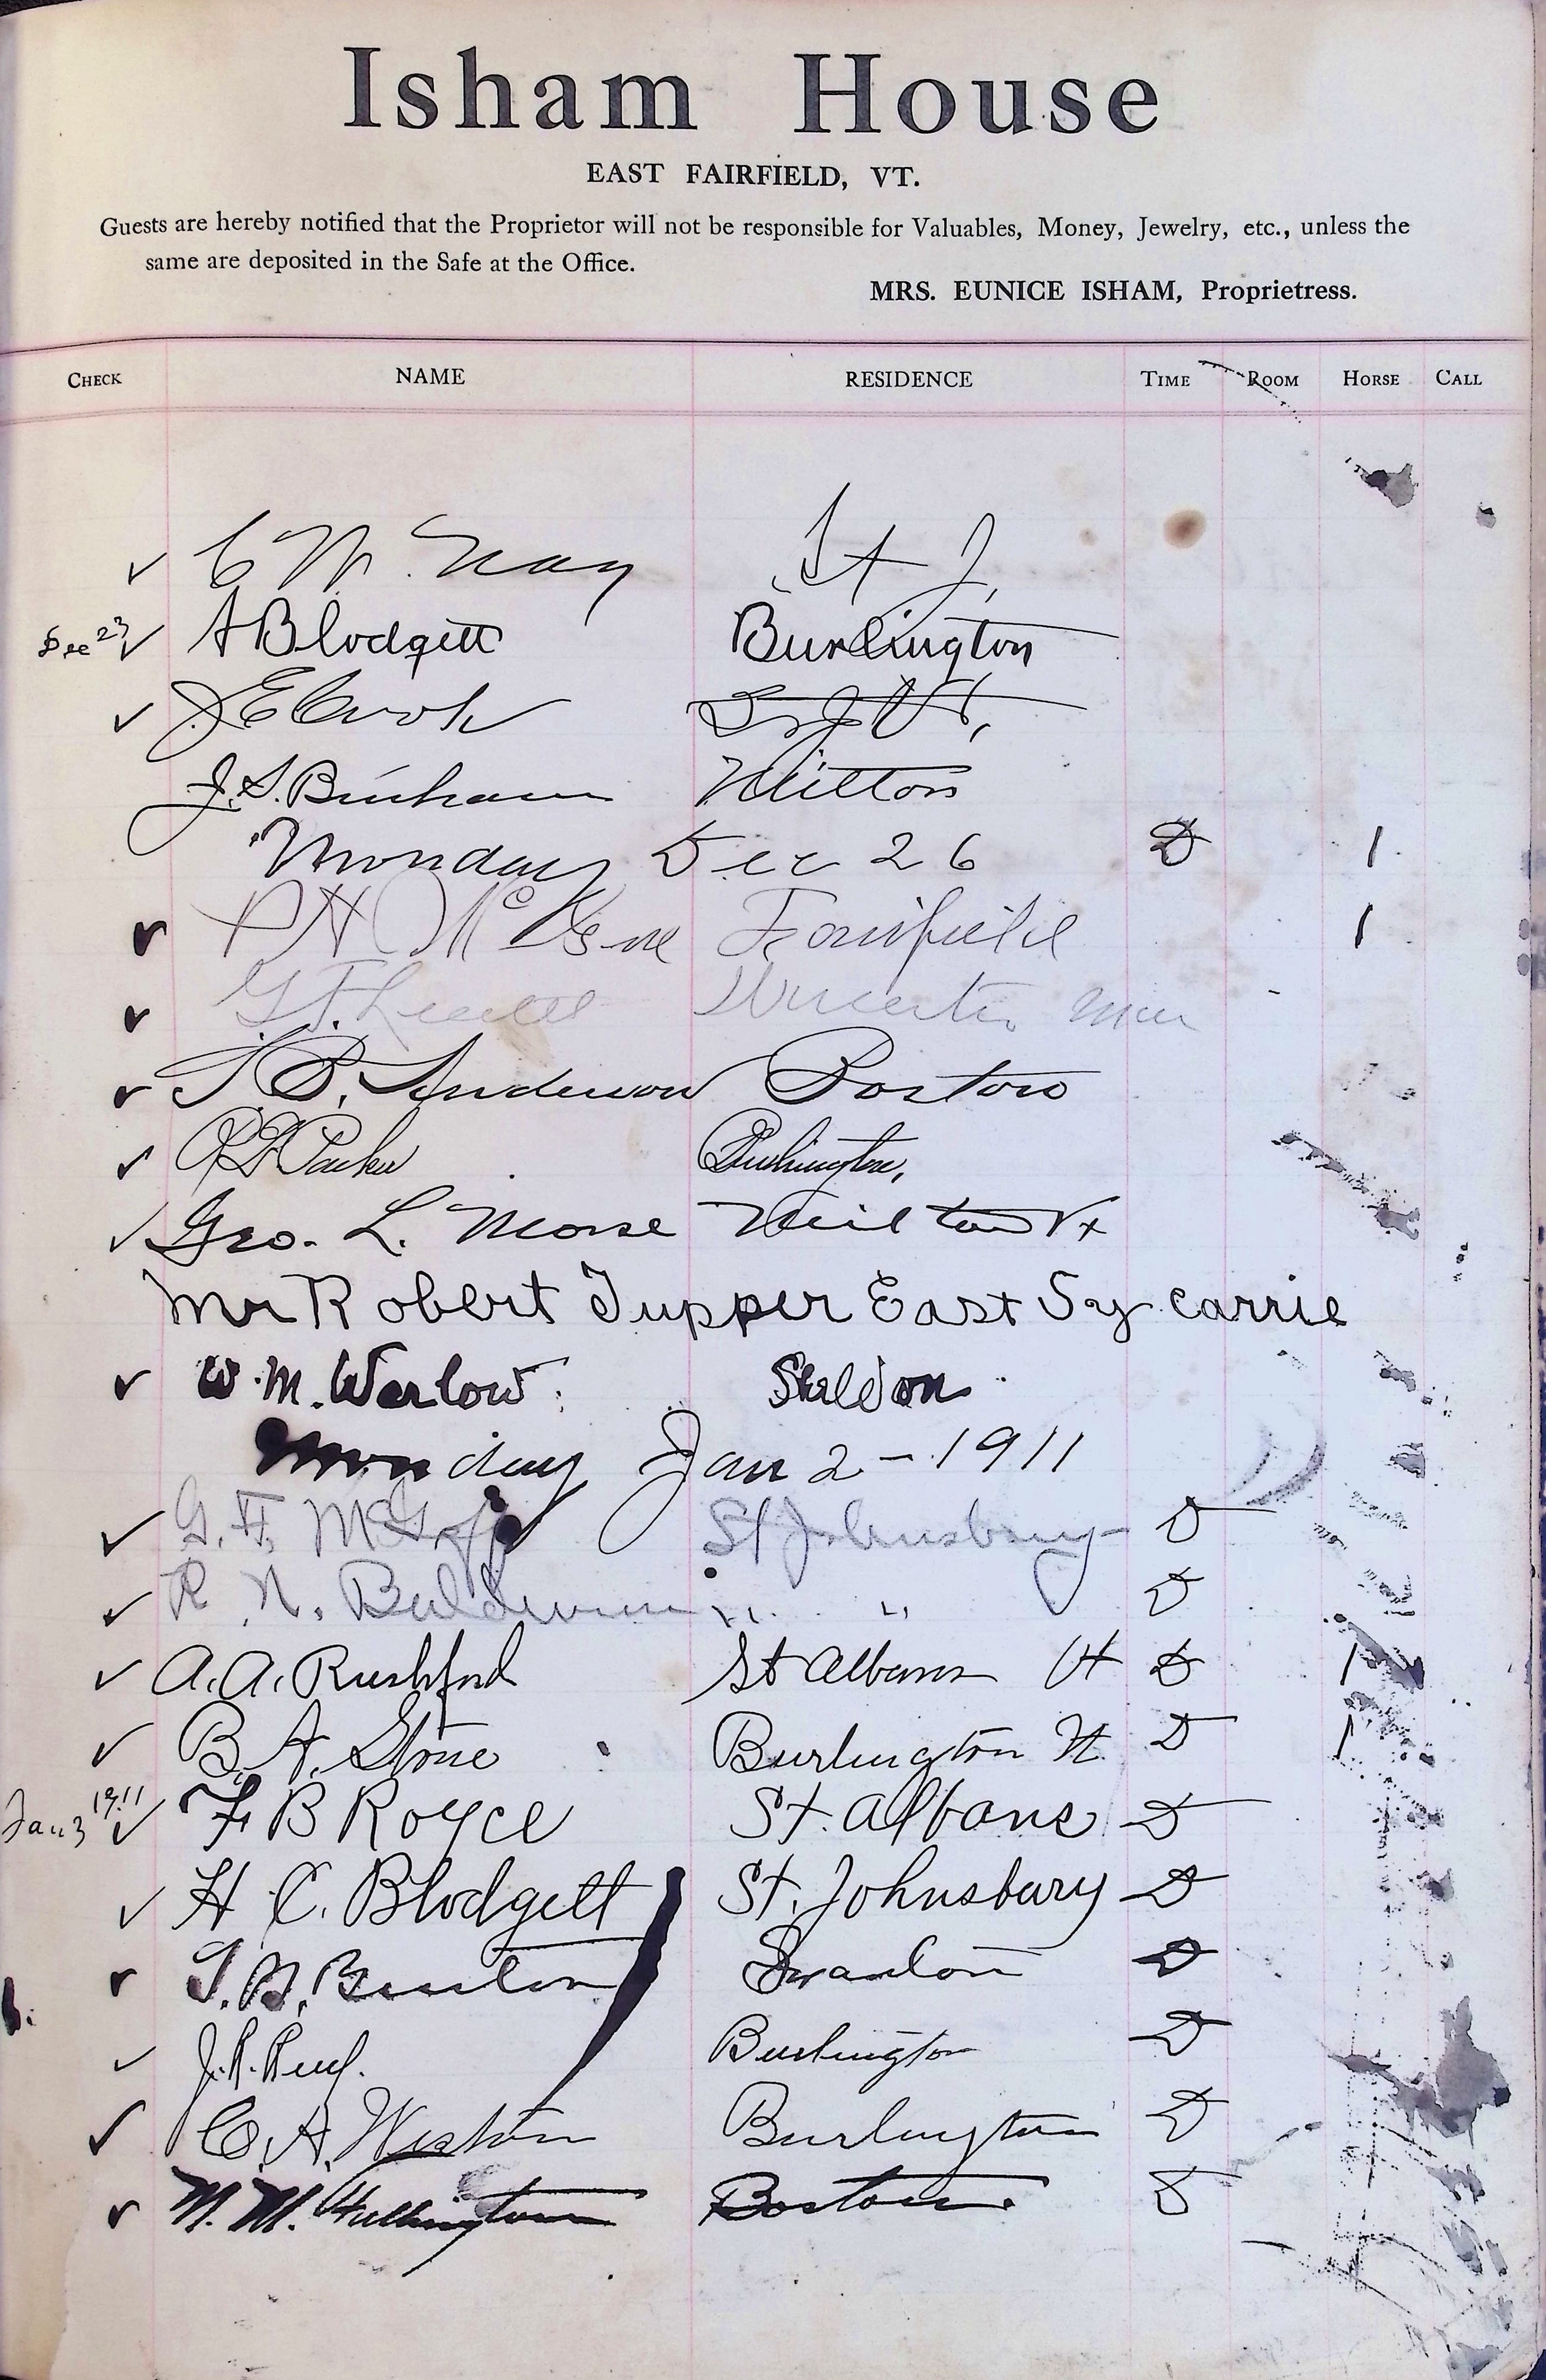 Isham House
EAST FAIRFIELD, VT.
Guests are hereby notified that the Proprietor will not be responsible for Valuables, Money, Jewelry, etc., unless the
same are deposited in the Safe at the Office.
MRS. EUNICE ISHAM, Proprietress.
CHECK NAME RESIDENCE TIME ROOM HORSE CALL
✓ C M. Nay St J.
Dec 23 ✓ A Blodgett Burlington
✓ J E Cook St J Vt,
J. S. Milton
Monday Dec 26 D 1
✓ P H Fairfield 1
✓ G. F.
✓ Anderson Boston
✓ Parker Burlington,
✓ Geo. L. Morse Milton Vt
Mr Robert Tupper East Sy carrie
✓ W. M. Warlow. Sheldon
Monday Jan 2 - 1911
✓ G. H. St Johnsbury D
✓ R. N. Baldwin " " D
✓ A. A. Rushford St Albans Vt D 1
✓ B. A. Stone Burlington Vt. D 1
Jan 3 1911 ✓ F B Royce St. Albans D
✓ H. C. Blodgett St. Johnsbury D
✓ Swanton D
✓ J. R. Burlington D
✓ C. A. Weston Burlington D
✓ M. M. Boston. S